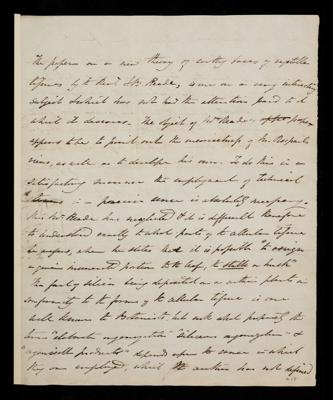 The paper on a new theory of earthy bases of vegetable
tissues by the Revd. J. B. Reade, is one on a very interesting
subject & which has not had the attention paid to it
which it deserves. The object of Mr Reade's paper
appears to be to point out the incorrectness of Mr
views, as well as to develope his own. To do this in a
satisfactory manner the employment of technical
in a precise sense is absolutely necessary.
This Mr Reade has neglected & it is difficult therefore
to understand exactly to what parts of the cellular tissue
he refers, when he states that it is possible "to assign
a given numerical portion to the
The fact of silica being deposited in certain plants in
conformity to the forms of the cellular tissue is one
well known to Botanists but not what propriety the
terms "elaborate organization" "siliceous organization" &
"organizable products" depends upon the sense in which
they are employed, which the author has not defined